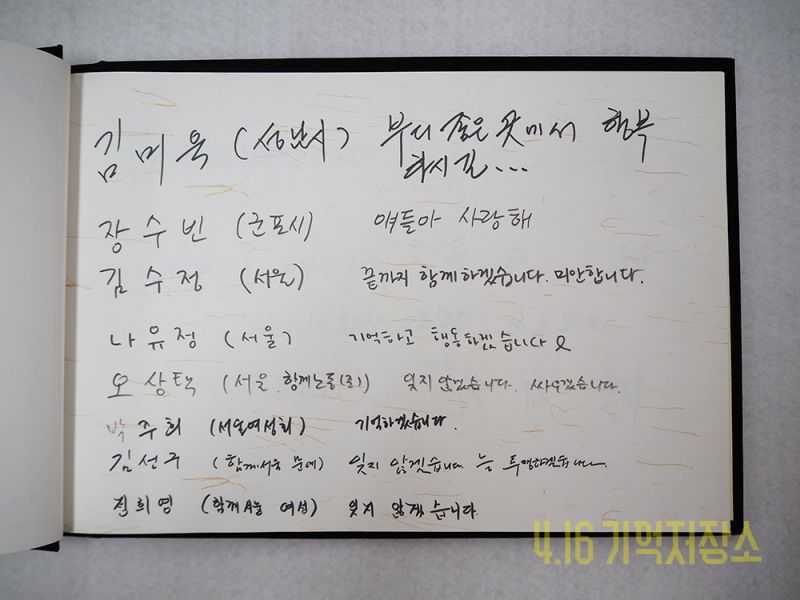 김미옥 (성남시) 부디 좋은 곳에서 행복
하시길...
장수빈 (군포시) 얘들아 사랑해
김수정 (서울) 끝까지 함께하겠습니다. 미안합니다.
나유정 (서울) 기억하고 행동하겠습니다
오상택 (서울 함께노동(조)) 잊지 않겠습니다. 싸우겠습니다.
박주희 (서울여성회) 기억하겠습니다.
김선구 (함께서울 문예) 잊지 않겠습니다 늘 투쟁하겠습니다.
전희영 (함께서울 여성) 잊지 않겠습니다
4.16 기억저장소